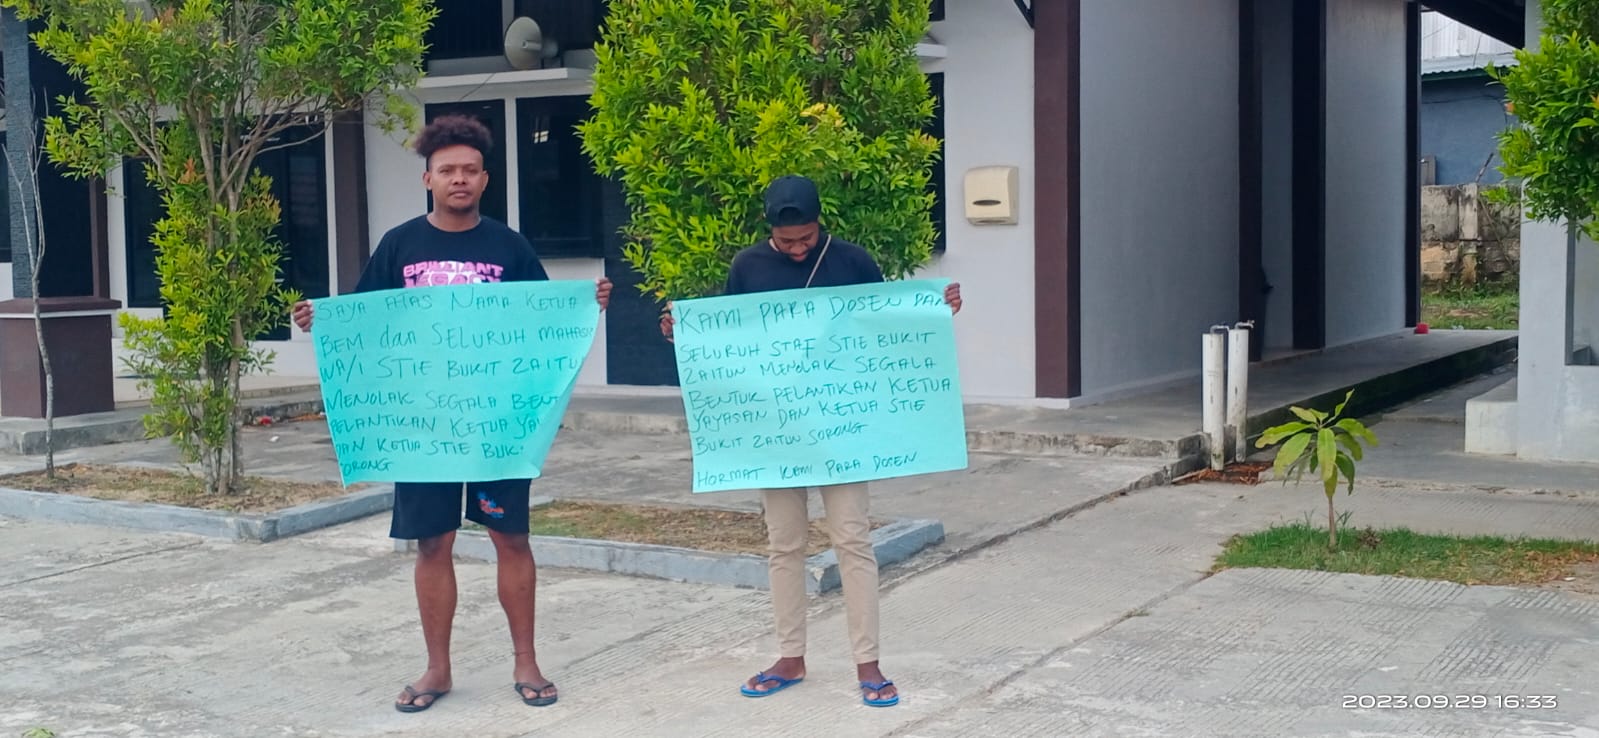 BRILLIANT
LEGACY
SAYA ATAS NAMA KETUA
BEM dan SELURUH MAHASIS
WA/I STIE BUKIT ZAITU
MENOLAK SEGALA BENT
PELANTIKAN KETUA YA
DAN KETUA STIE BUK
SORONG
KAMI PARA DOSEN DAN
SELURUH STAF STIE BUKIT
ZAITUN MENOLAK SEGALA
BENTUK PELANTIKAN KETUA
YAYASAN DAN KETUA STIE
BUKIT ZAITUN SORONG
HORMAT KAMI PARA DOSEN
2023.09.29 16:33